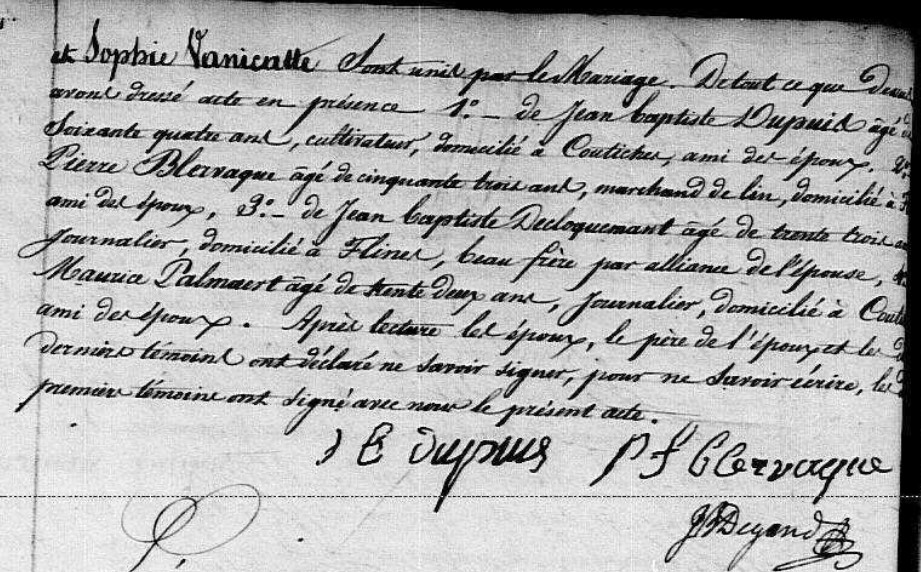 et Sophie Vanicatte Sont unis par le Mariage. De tout ce que dessus
avons dressé acte en présence 1.° - de Jean baptiste Dupuis âgé de
Soixante quatre ans, cultivateur, domicilié à Coutiches, ami des époux. 2.°
Pierre Blervaque âgé de cinquante trois ans, marchand de lin, domicilié à
ami des époux, 3.° - de Jean baptiste Decloquemant âgé de trente trois ans
Journalier, domicilié à Flines, beau frère par alliance de l'épouse,
Maurice Palmaert âgé de trente deux ans, Journalier, domicilié à
ami des époux. Après lecture les époux, le père de l'époux et les
derniers témoins ont déclaré ne savoir signer, pour ne savoir écrire, les
premiers témoins ont signé avec nous le présent acte.
dupuis P f blervaque
Degand